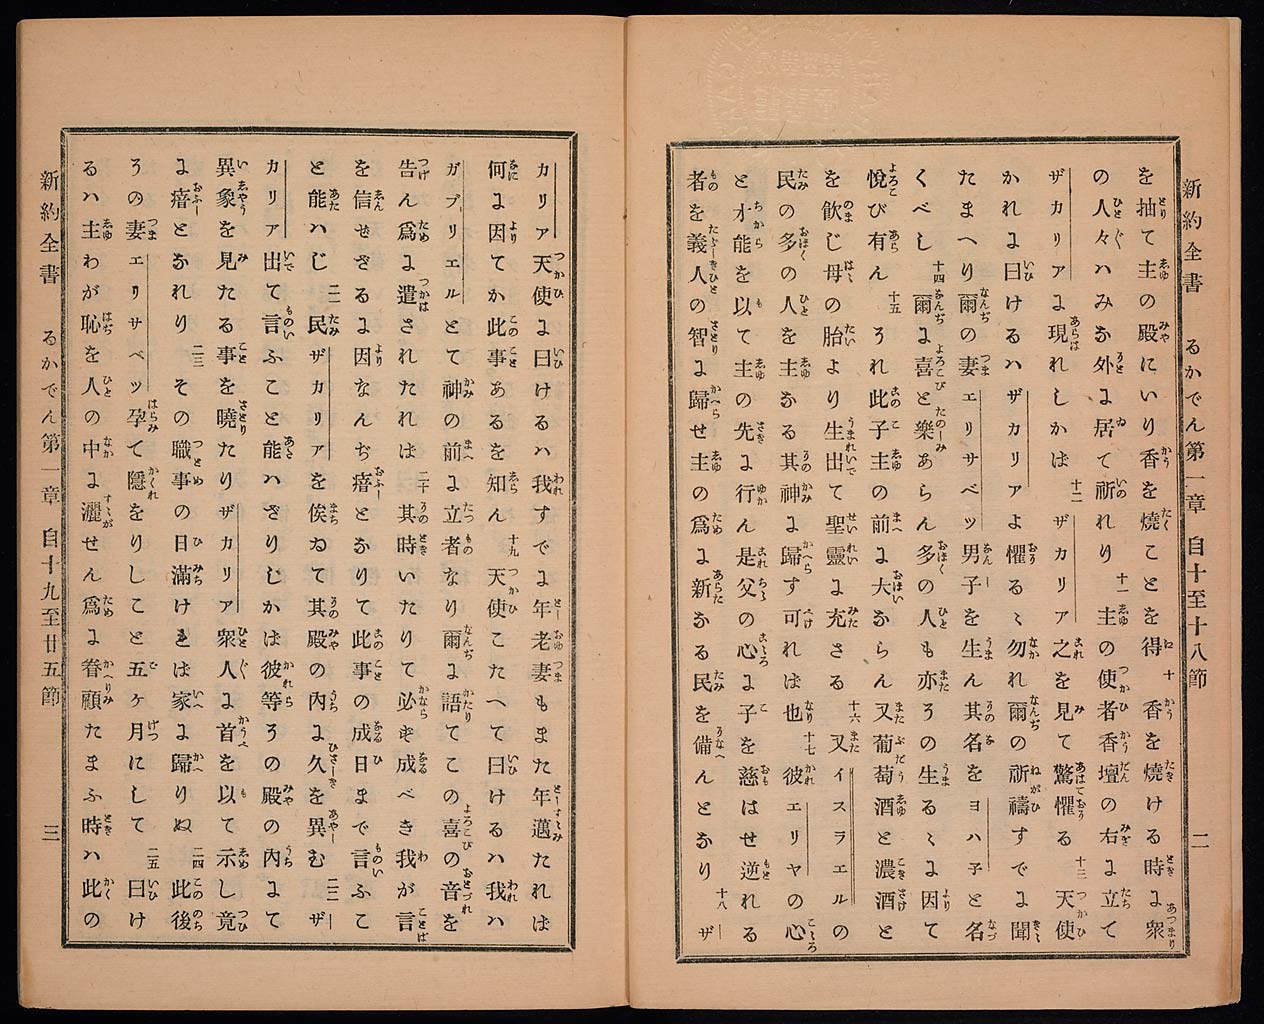 新約全書　るかでん第一章　自十至十八節　二
を抽て主の殿にいり香を燒ことを得 十 香を燒ける時に衆
の人々ハみな外に居て祈れり 十一 主の使者香壇の右に立て
ザカリアに現れしかば 十二 ザカリア之を見て驚懼る 十三 天使
かれに曰けるハザカリアよ懼るゝ勿れ爾の祈禱すでに聞
たまへり爾の妻エリサベツ男子を生ん其名をヨハ子と名
くべし 十四 爾に喜と樂あらん多の人も亦その生るゝに因て
悅び有ん 十五 それ此子主の前に大ならん又葡萄酒と濃酒と
を飮じ母の胎より生出て聖靈に充さる 十六 又イスラエルの
民の多の人を主なる其神に歸す可れば也 十七 彼エリヤの心
と才能を以て主の先に行ん是父の心に子を慈はせ逆れる
者を義人の智に歸せ主の爲に新たなる民を備んとなり 十八 ザ
カリア天使に曰けるハ我すでに年老妻もまた年邁たれば
何に因てか此事あるを知ん 十九 天使こたへて曰けるハ我ハ
ガブリエルとて神の前に立者なり爾に語てこの喜の音を
告ん爲に遣されたれは 二十 其時いたりて必ず成べき我が言
を信ぜざるに因なんぢ瘖となりて此事の成日まで言ふこ
と能ハじ 二一 民ザカリアを俟ゐて其殿の內に久を異む 二二 ザ
カリア出て言ふこと能ハざりしかは彼等その殿の內にて
異象を見たる事を曉たりザカリア衆人に首を以て示し竟
に瘖となれり 二三 その職事の日滿ければ家に歸りぬ 二四 此後
その妻エリサベツ孕て隱をりしこと五ヶ月にして 二五 曰け
るハ主わが恥を人の中に灑せん爲に眷顧たまふ時ハ此の
新約全書　るかでん第一章　自十九至廿五節　三